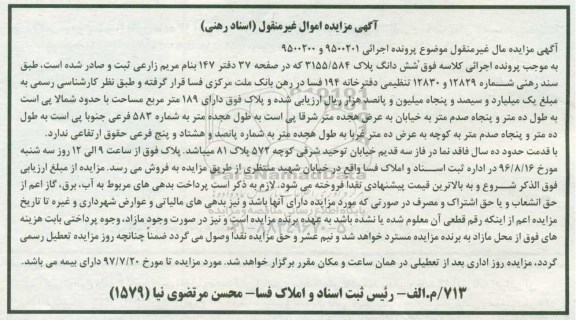 آگهی مزایده اموال غیرمنقول (اسناد رهنی)
آگهی مزایده مال غیرمنقول موضوع پرونده اجرائی ۹۵۰۰۲۰۱ و ۹۵۰۰۲۰۰
به موجب پرونده اجرائی کلاسه فوق شش دانگ پلاک ۳۱۵۵/۵۸۴ که در صفحه ۳۷ دفتر ۱۴۷ بنام مریم زارعی ثبت و صادر شده است، طبق
سند رهنی شماره ۱۲۸۲۹ و ۱۲۸۳۰ تنظیمی دفترخانه ۱۹۴ فسا در رهن بانک ملت مرکزی فسا قرار گرفته و طبق نظر کارشناسی رسمی به
مبلغ یک میلیارد و سیصد و پنجاه میلیون و پانصد هزار ریال ارزیابی شده و پلاک فوق دارای ۱۸۹ متر مربع مساحت با حدود شمالا پی است
به طول ده متر و پنجاه صدم متر به خیابان به عرض هجده متر شرقا پی است به طول هجده متر به شماره ۵۸۳ فرعی جنوبا پی است به طول
ده متر و پنجاه صدم متر به کوچه به عرض ده متر غربا به طول هجده متر به شماره پانصد و هشتاد و پنج فرعی حقوق ارتفاعی ندارد.
با قدمت حدود ده سال فاقد نما در فاز سه قدیم خیابان توحید شرقی کوچه ۵۷۲ پلاک ۸۱ میباشد. پلاک فوق از ساعت ۹ الی ۱۲ روز سه شنبه
مورخ ۹۶/۸/۱۶ در اداره ثبت اسناد و املاک فسا واقع در خیابان شهید منتظری از طریق مزایده به فروش می رسد. مزایده از مبلغ ارزیابی
فوق الذکر شروع و به بالاترین قیمت پیشنهادی نقدا فروخته می شود. لازم به ذکر است پرداخت بدهی های مربوط به آب، برق، گاز اعم از
حق انشعاب و یا حق اشتراک و مصرف در صورتی که مورد مزایده دارای آنها باشد و نیز بدهی های مالیاتی و عوارض شهرداری و غیره تا تاریخ
مزایده اعم از اینکه رقم قطعی آن معلوم شده یا نشده باشد به عهده برنده مزایده است و نیز در صورت وجود مازاد، وجوه پرداختی بابت هزینه
های فوق از محل مازاد به برنده مزایده مسترد خواهد شد و نیم عشر و حق مزایده نقدا وصول می گردد ضمنا چنانچه روز مزایده تعطیل رسمی
گردد، مزایده روز اداری بعد از تعطیلی در همان ساعت و مکان مقرر برگزار خواهد شد. مورد مزایده تا مورخ ۹۷/۷/۲۰ دارای بیمه می باشد.
۷۱۳/م.الف- رئیس ثبت اسناد و املاک فسا- محسن مرتضوی نیا (۱۵۷۹)